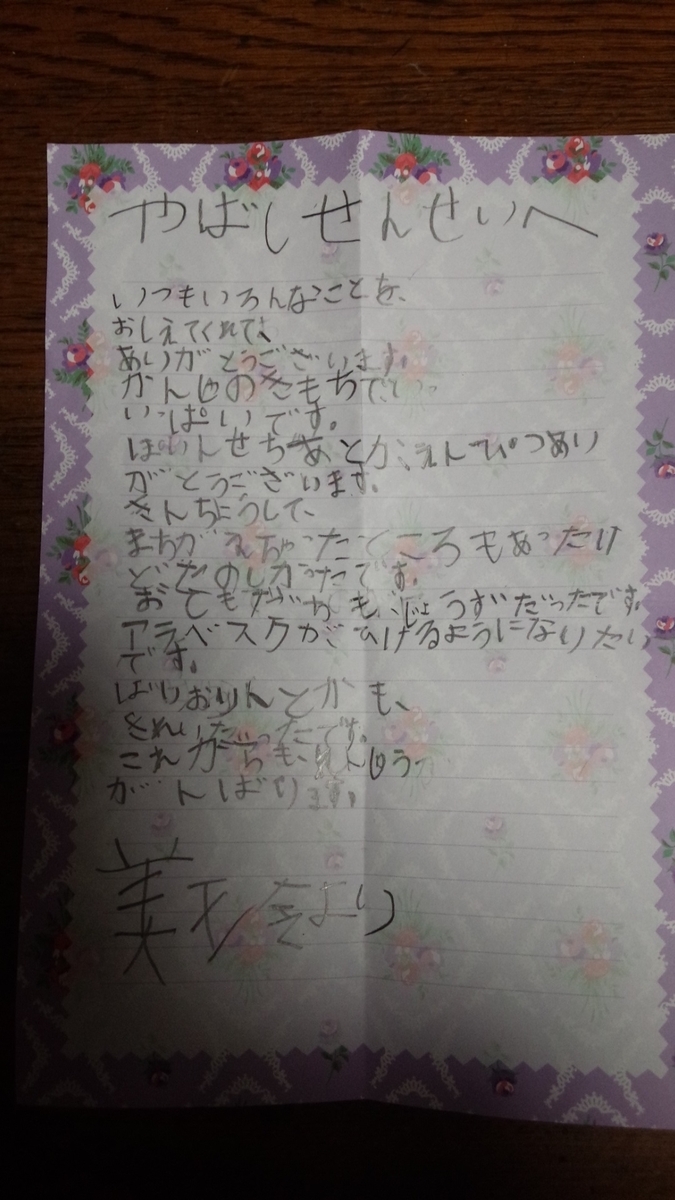 やばしせんせいへ
いつもいろんなことを、
おしえてくれて、
ありがとうございます。
かんじのきもちで
いっぱいです。
えんぴつあり
がとうございます。
きんちょうして、
まちがえちゃったところもあったけ
どたのしかったです。
じょうずだったです。
アラベスクがひけるようになりたい
です。
ばいおりんとかも、
きれいだったです。
これからも、れんしゅう
がんばります。
より